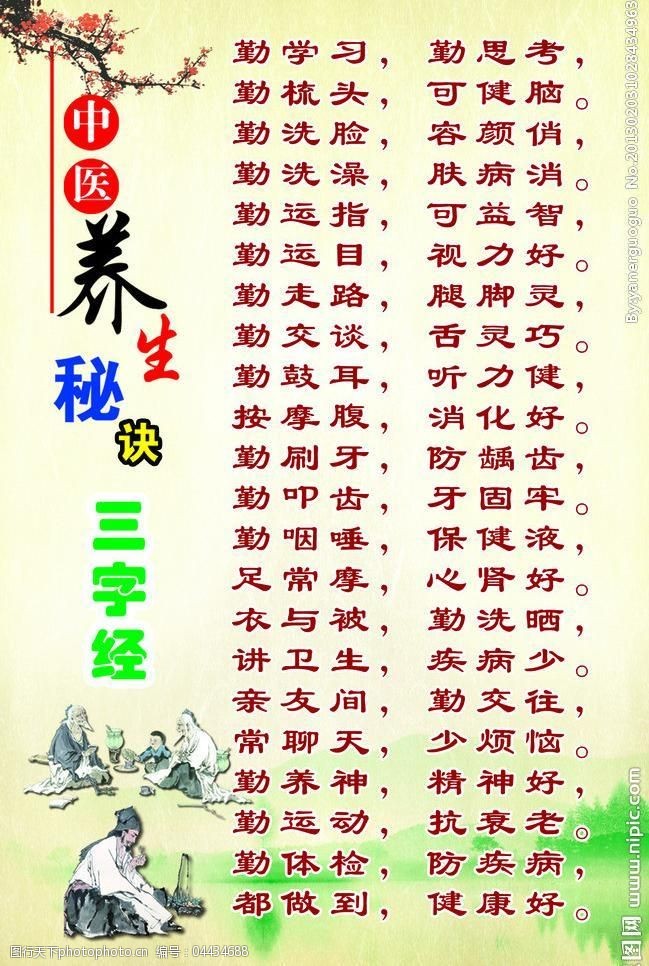 中医养生秘诀
三字经
勤学习，勤思考，
勤梳头，可健脑。
勤洗脸，容颜俏，
勤洗澡，肤病消。
勤运指，可益智，
勤运目，视力好。
勤走路，腿脚灵，
勤交谈，舌灵巧。
勤鼓耳，听力健，
按摩腹，消化好。
勤刷牙，防龋齿，
勤叩齿，牙固牢。
勤咽唾，保健液，
足常摩，心肾好。
衣与被，勤洗晒，
讲卫生，疾病少。
亲友间，勤交往，
常聊天，少烦恼。
勤养神，精神好，
勤运动，抗衰老。
勤体检，防疾病，
都做到，健康好。
By:yanerguoguo No.201302031028434963
图网 www.nipic.com
图行天下 photophoto.cn 编号：04454688